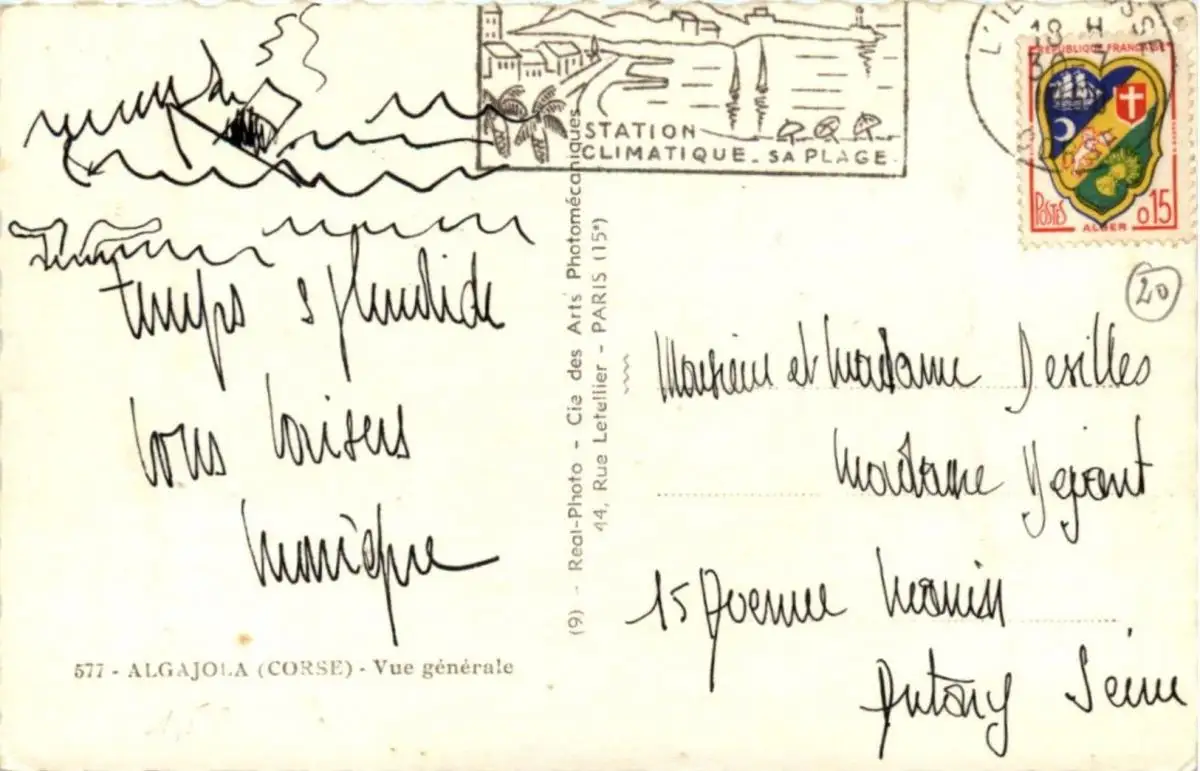 STATION
CLIMATIQUE - SA PLAGE
L'IL
19 H
30-7
REPUBLIQUE FRANÇAISE
POSTES
0,15
ALGER
20
temps splendide
bons baisers
Monique
577 - ALGAJOLA (CORSE) - Vue générale
(9) - Real-Photo - Cie des Arts Photomécaniques
44, Rue Letellier - PARIS (15e)
Monsieur et Madame Desilles
Madame
15 Avenue
Antony Seine